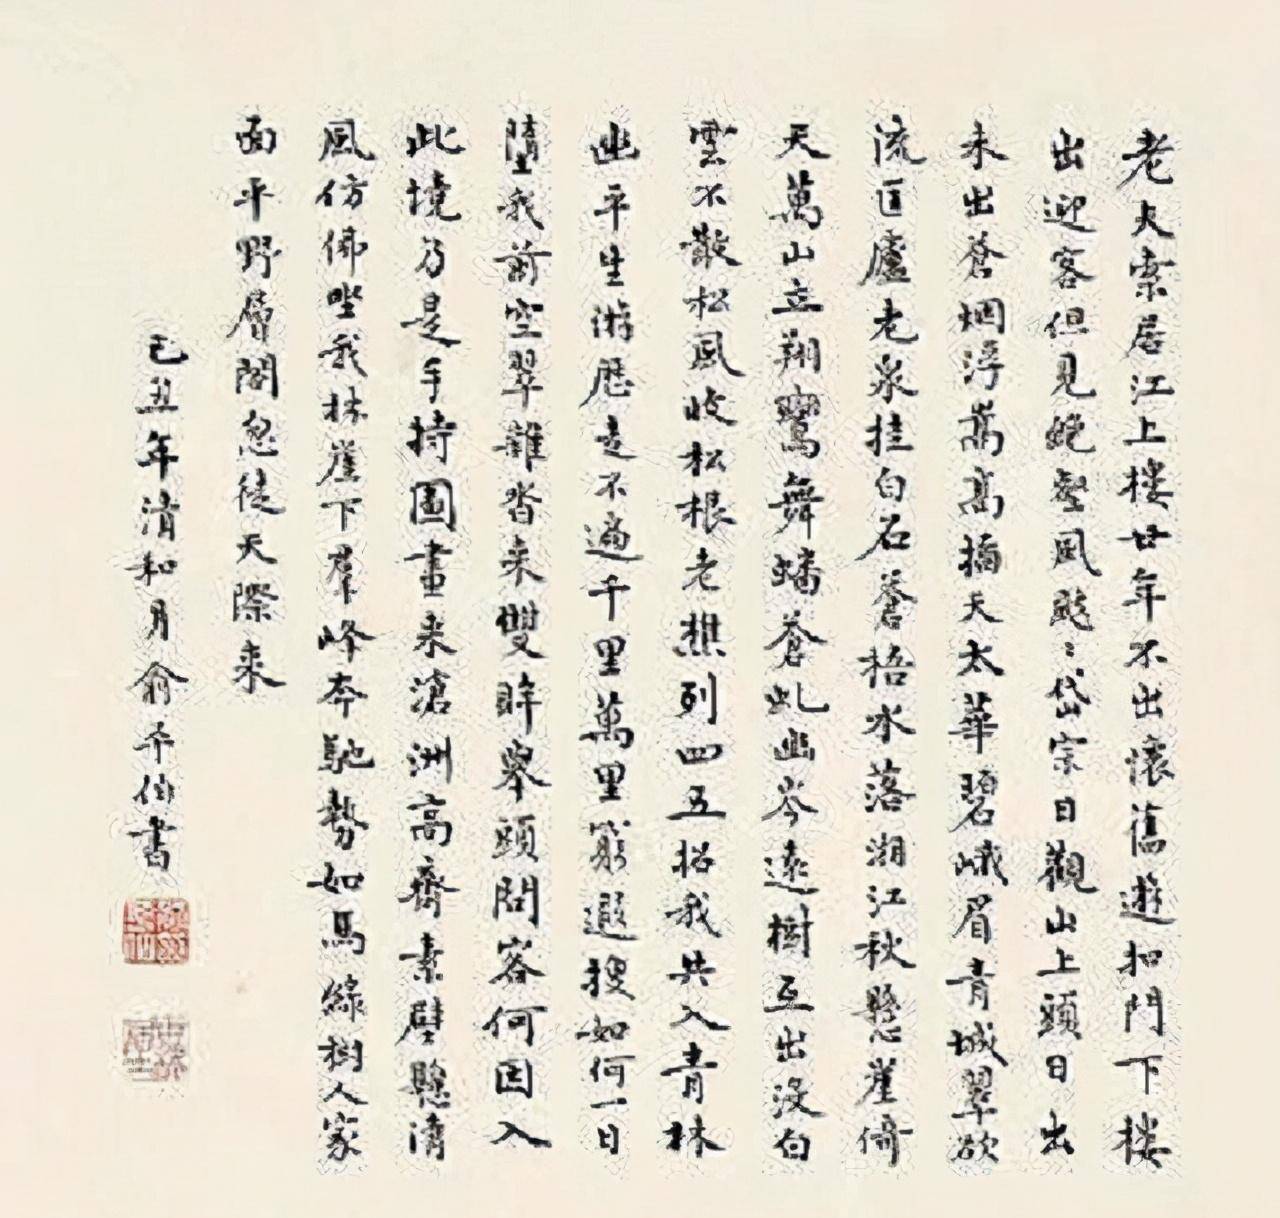 老大索居江上樓廿年不出懷舊遊扣門下樓
出迎客但見絶壑風颼〻岱宗日觀山上頭日出
未出蒼烟浮嵩高插天太華碧峨眉青城翠欲
流匡廬老泉挂白石蒼梧水落湘江秋懸崖倚
天萬山立翔鸞舞蟠蒼虬幽岑遠樹互出没白
雲不散松風收松根老樵列四五招我共入青林
幽平生游歷走不遍千里萬里窮遐搜如何一日
墮我前空翠雜沓來雙眸舉頭問客何因入
此境乃是手持圖畫來滄洲高齋素壁懸清
風仿佛坐我林崖下群峰奔馳勢如馬緑樹人家
面平野層閣忽從天際來
己丑年清和月俞平伯書